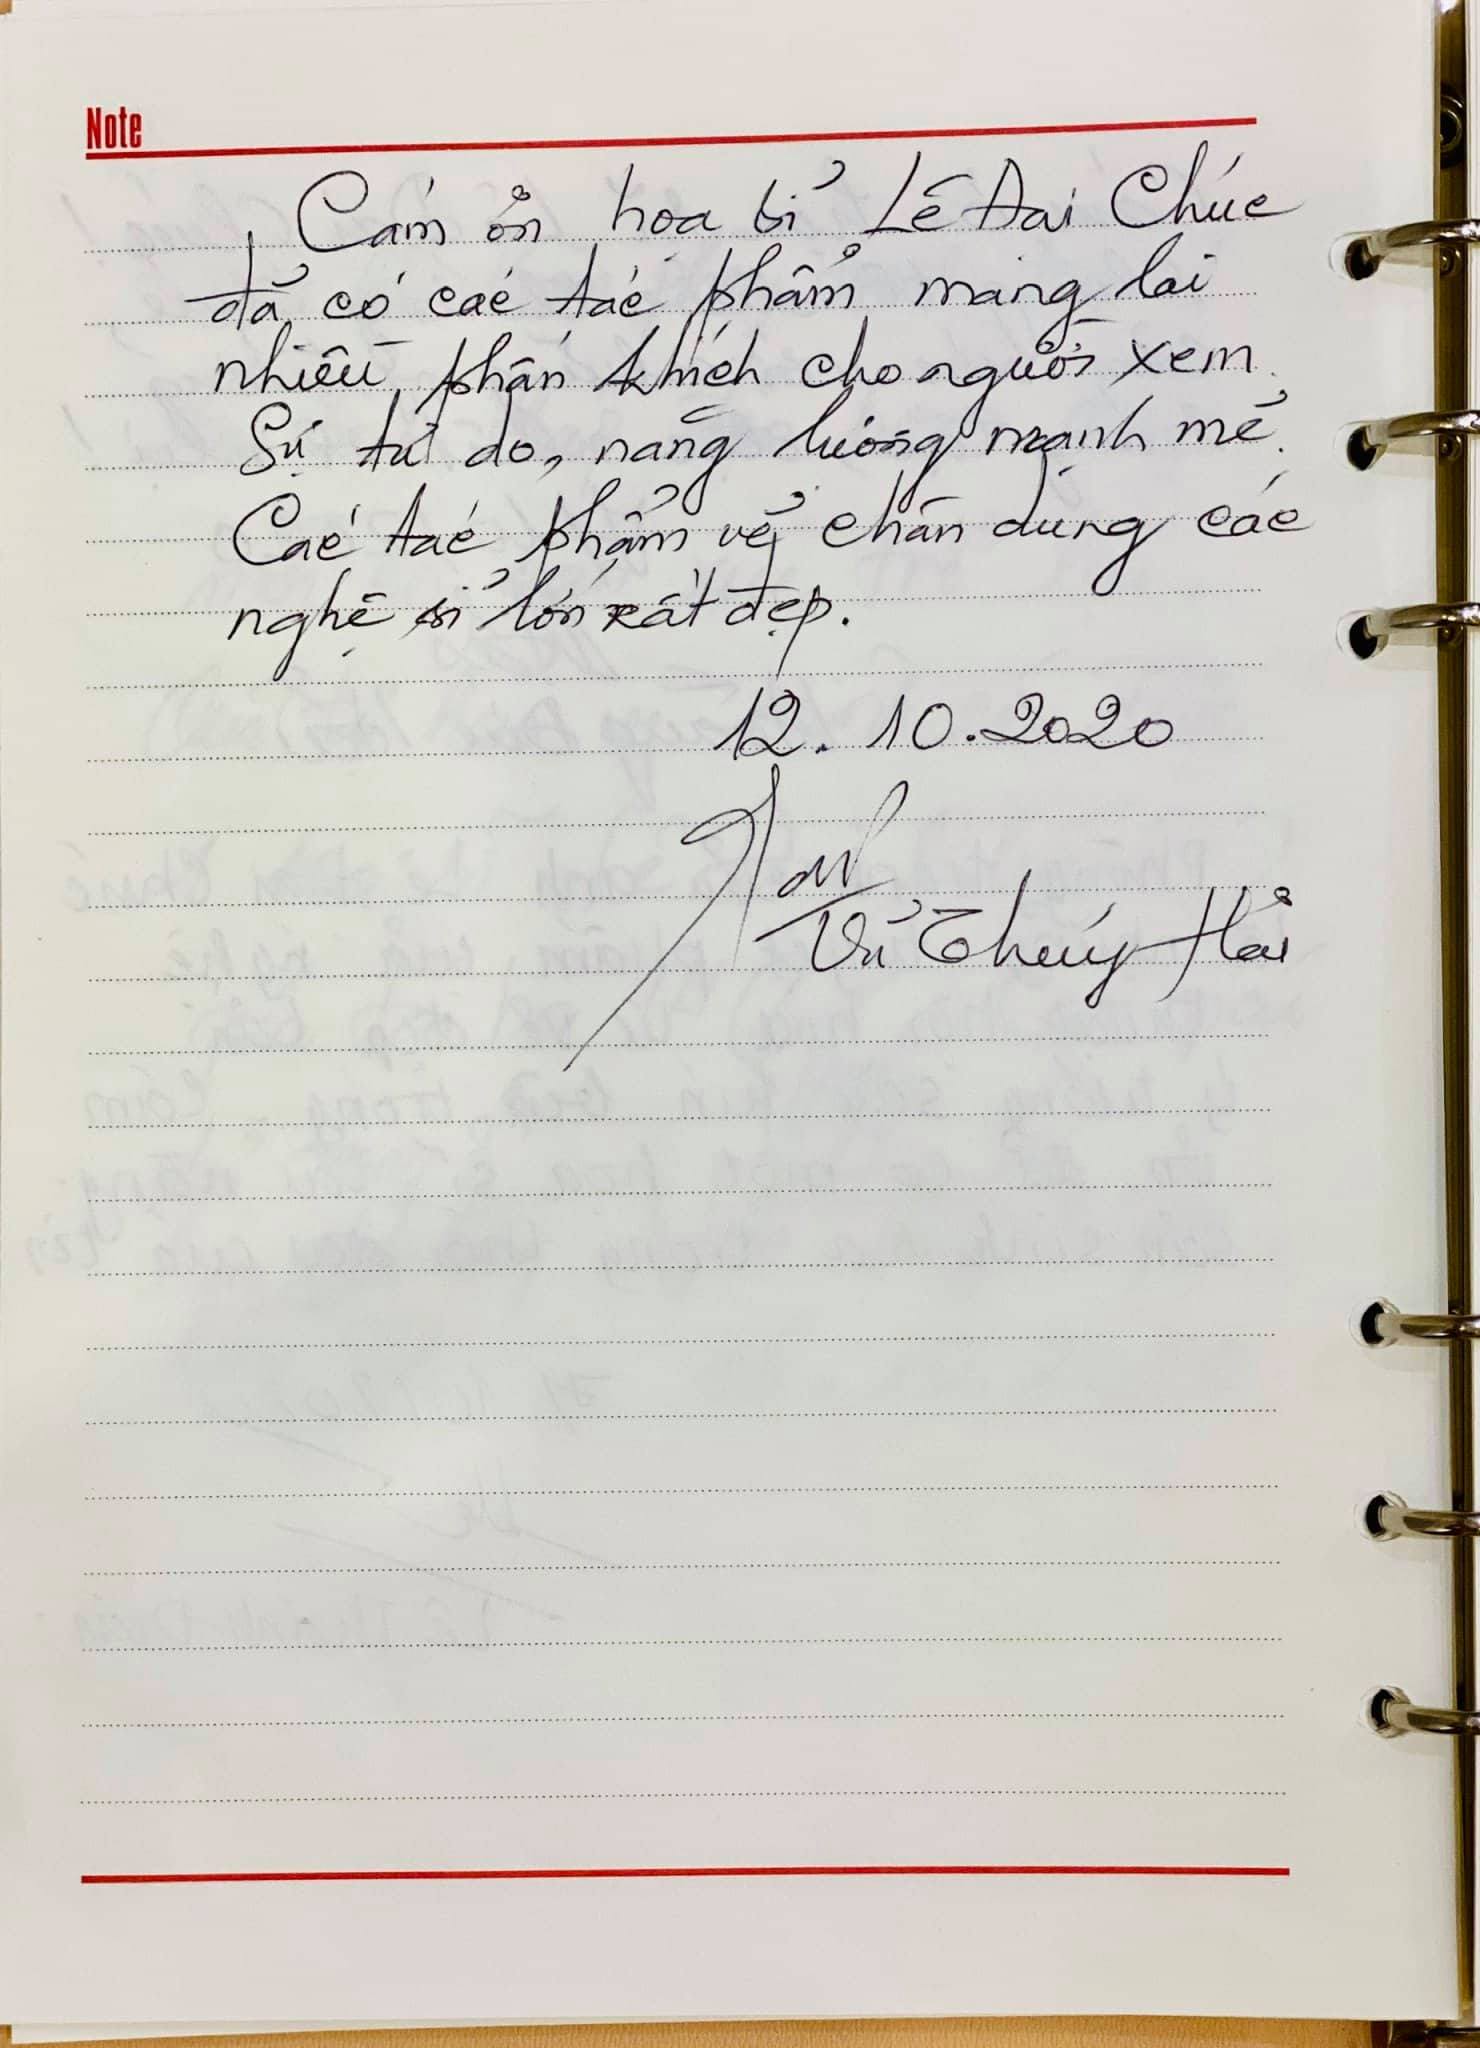 Note
Cám ơn họa sĩ Lê Đại Chúc
đã có các tác phẩm mang lại
nhiều phấn khích cho người xem.
Sự tự do, năng lượng mạnh mẽ.
Các tác phẩm về chân dung các
nghệ sĩ lớn rất đẹp.
12.10.2020
Vũ Thúy Hải